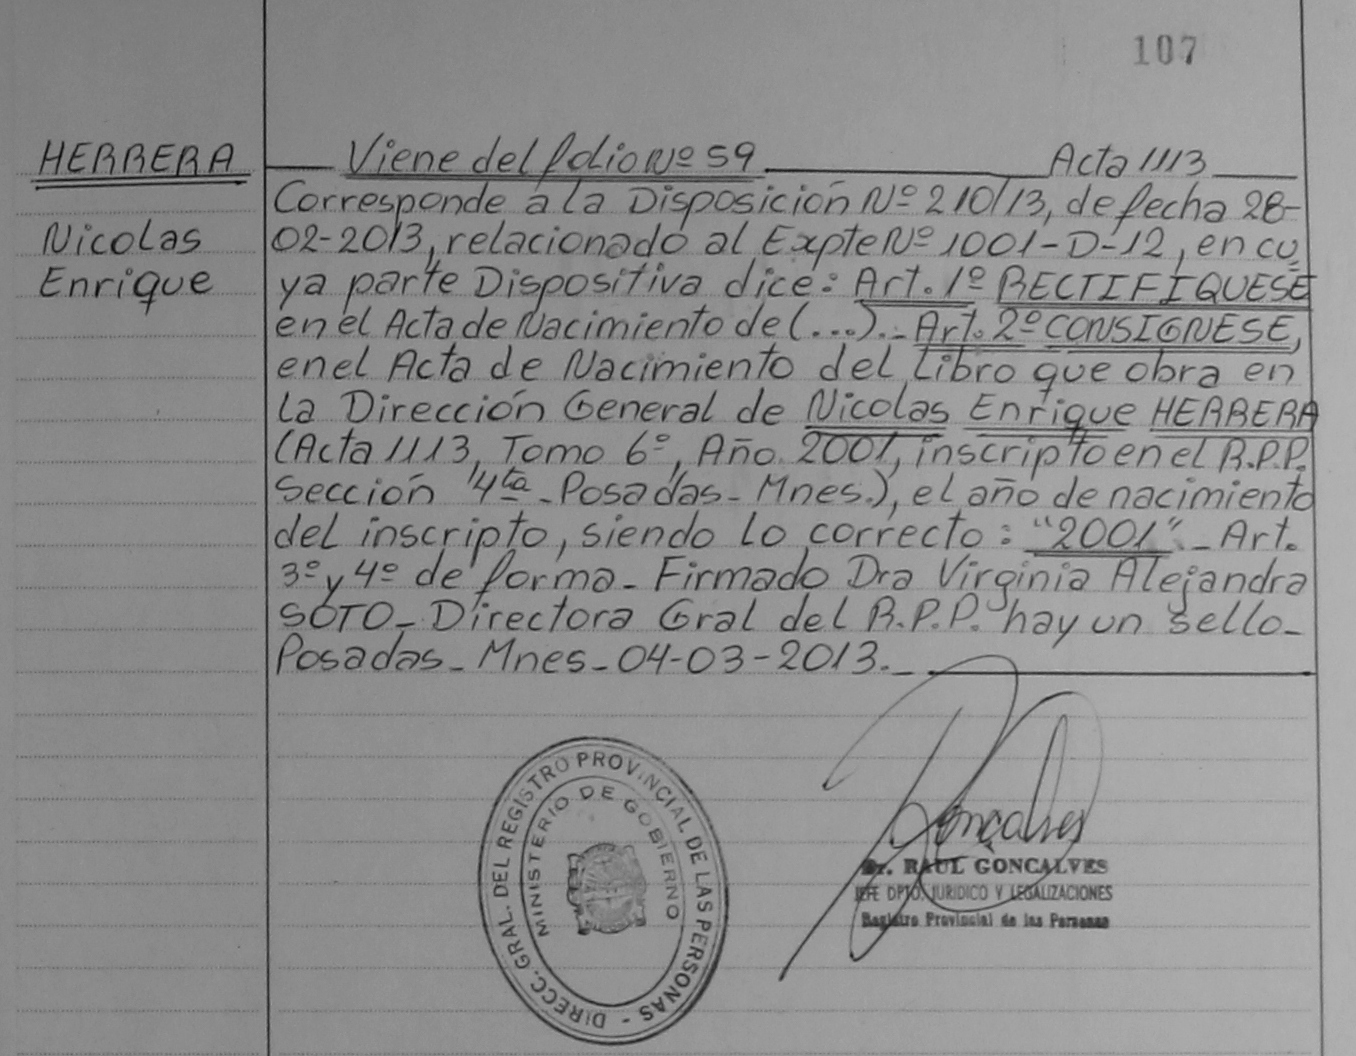 107
HERRERA
Nicolas
Enrique
Viene del folio Nº 59 Acta 1113
Corresponde a la Disposición Nº 210/13, de fecha 28-
02-2013, relacionado al Expte Nº 1001-D-12, en cu
ya parte Dispositiva dice: Art. 1º RECTIFIQUESE
en el Acta de Nacimiento de (...).- Art. 2º CONSIGNESE,
en el Acta de Nacimiento del Libro que obra en
la Dirección General de Nicolas Enrique HERRERA
(Acta 1113, Tomo 6º, Año 2001, inscripto en el R.P.P.
Sección 4ta - Posadas - Mnes.), el año de nacimiento
del inscripto, siendo lo correcto: "2001" - Art.
3º y 4º de forma - Firmado Dra Virginia Alejandra
SOTO - Directora Gral del R.P.P. hay un sello -
Posadas - Mnes - 04-03-2013. -
DIRECC. GRAL. DEL REGISTRO PROVINCIAL DE LAS PERSONAS -
MINISTERIO DE GOBIERNO
Gonçalves
Dr. RAUL GONCALVES
JEFE DPTO. JURIDICO Y LEGALIZACIONES
Registro Provincial de las Personas